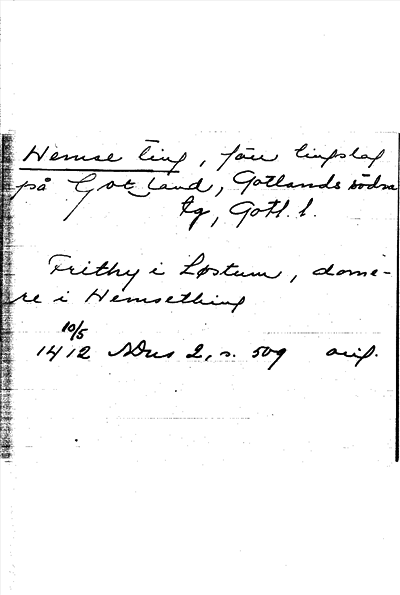 Hemse ting, förr tingslag
på Gotland, Gotlands södra
tg, Gotl. l.
Frithy i Løstum, doma-
re i Hemsething
10/5
1412 SDns 2, s. 509 orig.